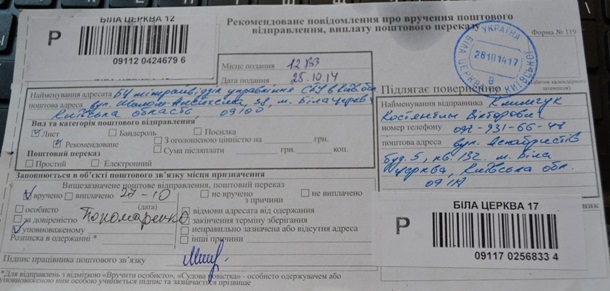 Рекомендоване повідомлення про вручення поштового
відправлення, виплату поштового переказу
Форма № 119
Р
БІЛА ЦЕРКВА 12
09112 0424679 6
Місце подання
Дата подання 25.10.14
УКРАЇНА
28 10 14 17
БІЛА ЦЕРКВА
Найменування адресата
поштова адреса
Київська область 09100
Вид та категорія поштового відправлення
Лист Бандероль Посилка
Рекомендоване З оголошеною цінністю на грн.
Сума післяплати грн.
Поштовий переказ
Простий Електронний
Підлягає поверненню
Найменування відправника Климчук
Костянтин Вікторович
номер телефону
поштова адреса вул. Декабристів
м. Біла
Церква, Київська обл.
Заповнюється в об'єкті поштового зв'язку місця призначення
Вищезазначене поштове відправлення, поштовий переказ
вручено виплачено 27-10 не вручено не виплачено
(дата) з причини
особисто Пономаренко відмови адресата від одержання
за довіреністю закінчення терміну зберігання
уповноваженому неправильно зазначена або відсутня адреса
Розписка в одержанні * інші причини
Підпис працівника поштового зв'язку
*Для відправлень з відміткою «Вручити особисто», «Судова повістка» - особисто одержувачем або
Р
БІЛА ЦЕРКВА 17
09117 0256833 4